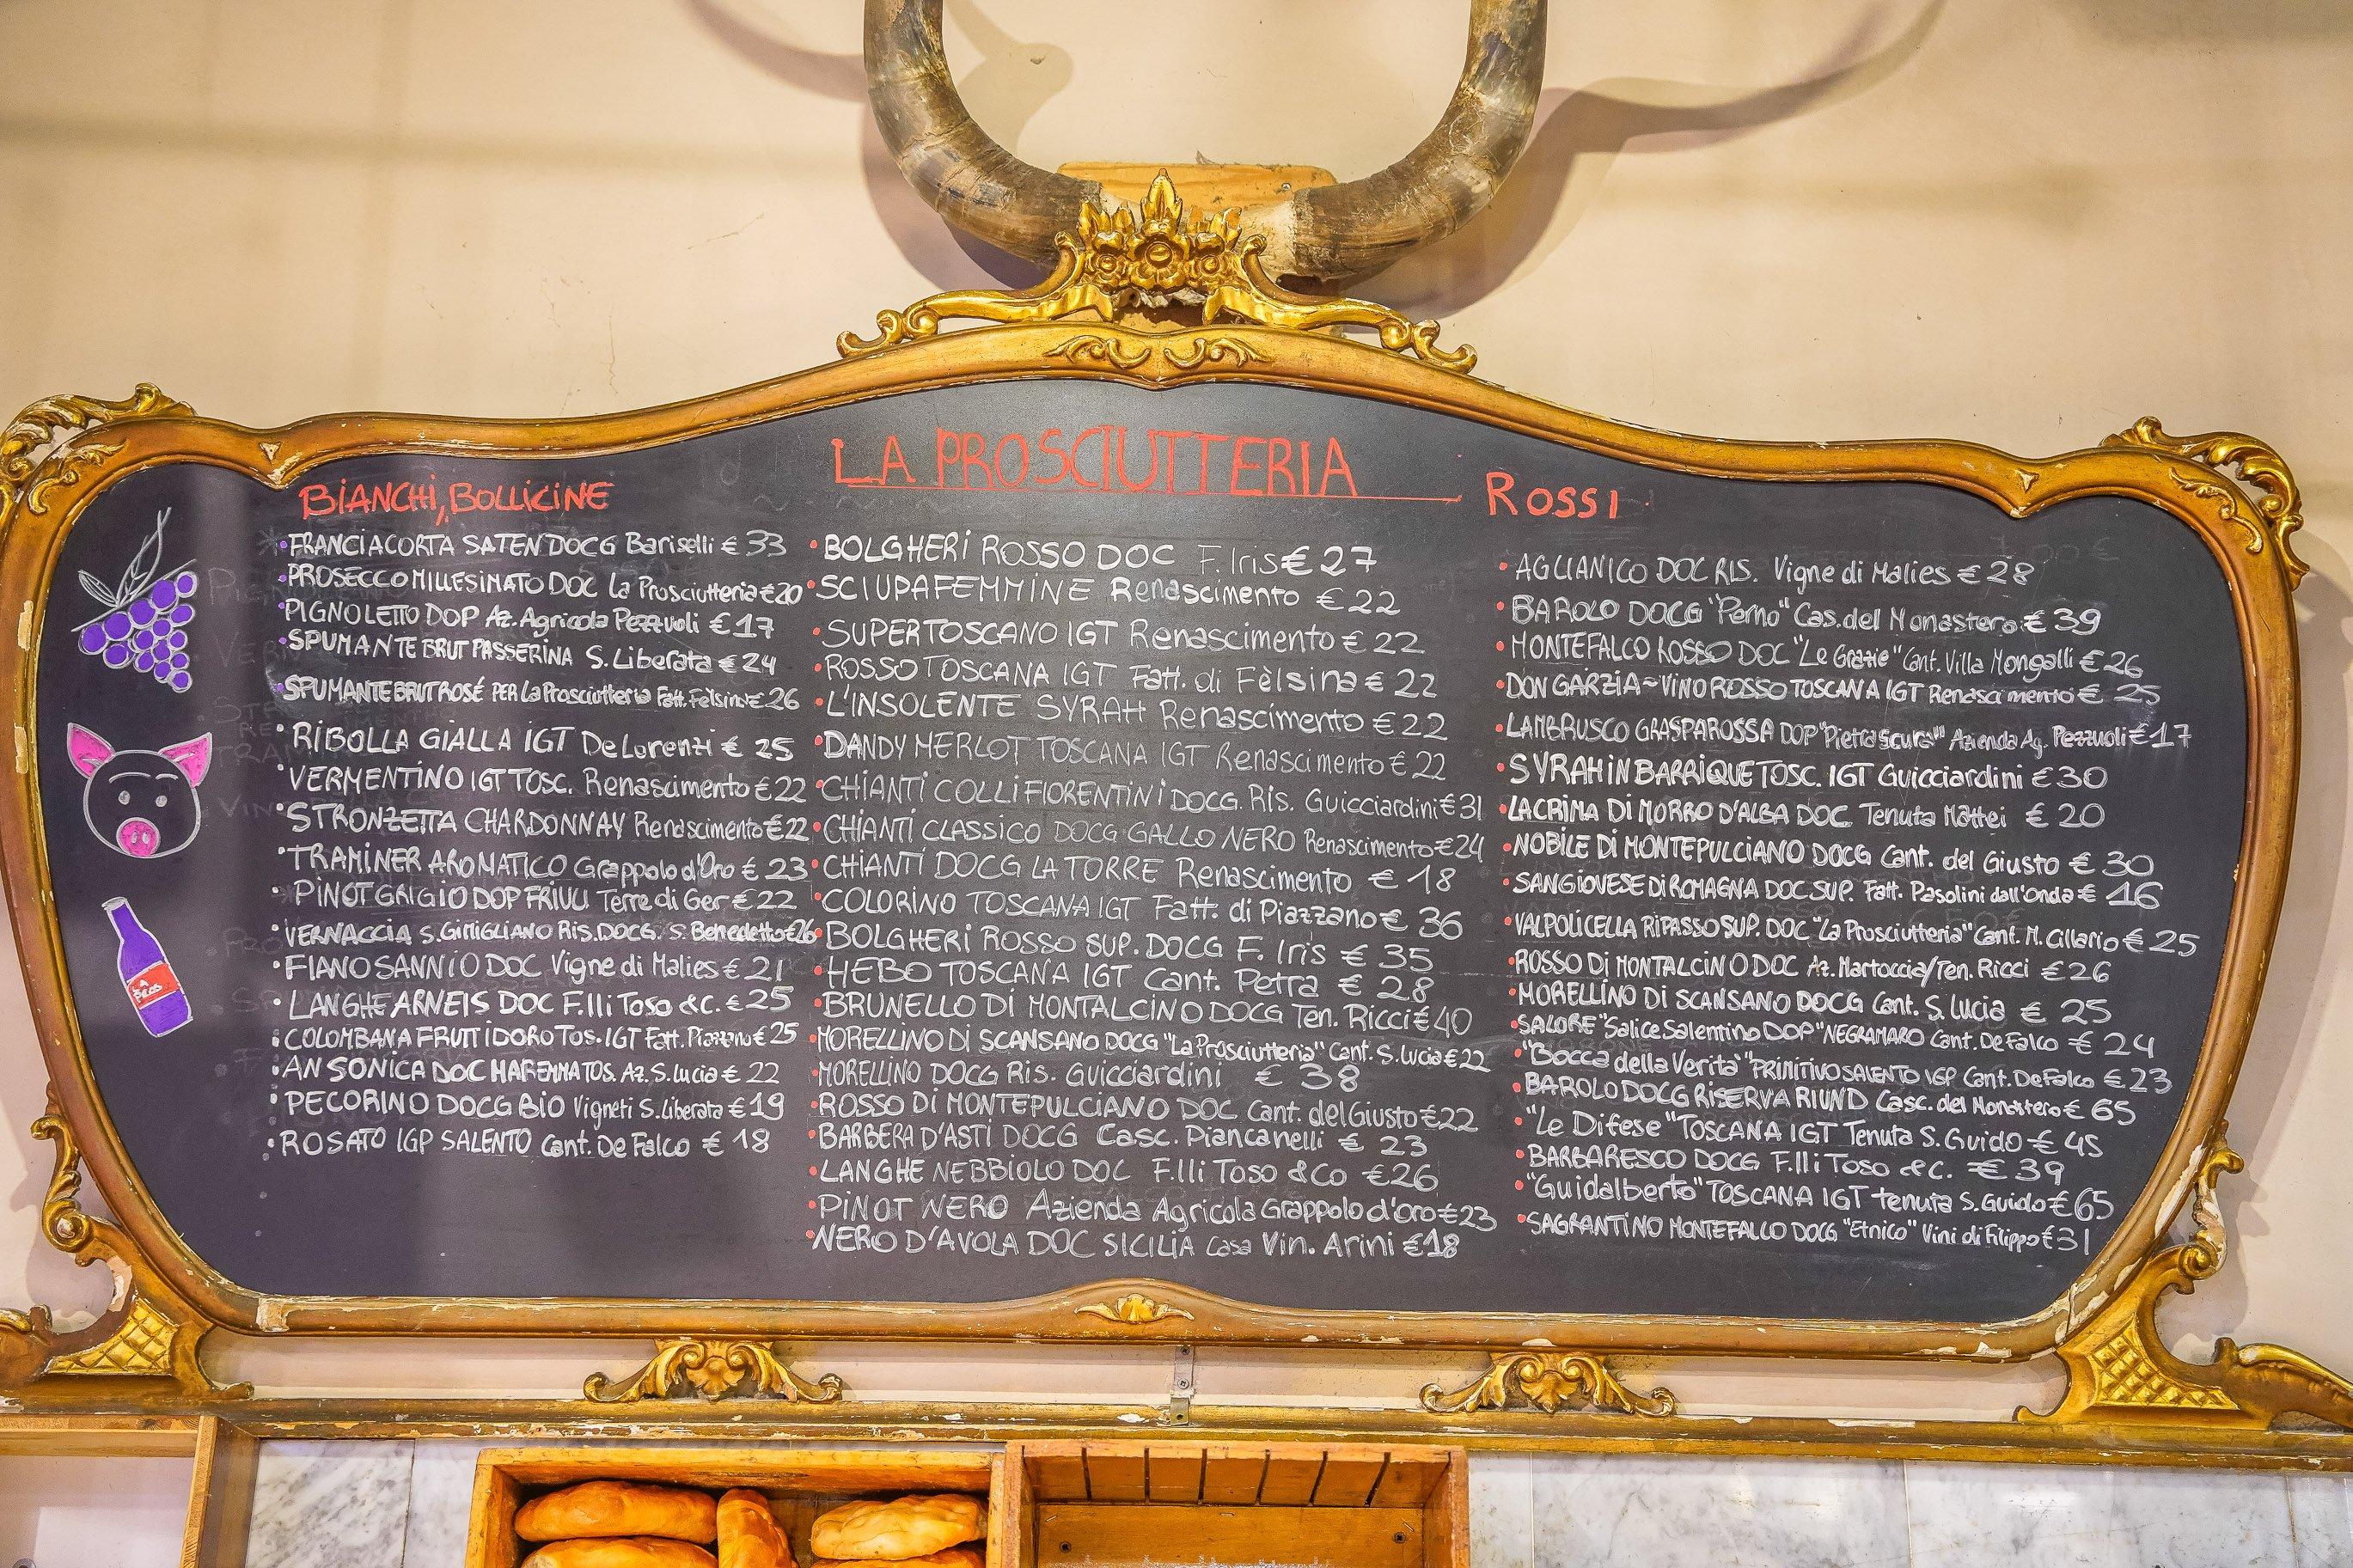 LA PROSCIUTTERIA
BIANCHI, BOLLICINE
FRANCIACORTA SATEN DOCG Bariselli € 33
PROSECCO MILLESIMATO DOC La Prosciutteria €20
PIGNOLETTO DOP Az. Agricola Pezzuoli € 17
SPUMANTE BRUT PASSERINA S. Liberata € 24
SPUMANTE BRUT ROSÉ PER La Prosciutteria Fatt. Fèlsina € 26
RIBOLLA GIALLA IGT De Lorenzi € 25
VERMENTINO IGT TOSC. Renascimento € 22
STRONZETTA CHARDONNAY Renascimento € 22
TRAMINER AROMATICO Grappolo d'Oro € 23
PINOT GRIGIO DOP FRIULI Terre di Ger € 22
VERNACCIA S. GIMIGLIANO Ris. DOCG. S. Benedetto €26
FIANO SANNIO DOC Vigne di Malies € 21
LANGHE ARNEIS DOC F.lli Toso & C. € 25
COLOMBANA FRUTTIDORO TOS. IGT Fatt. Piazzano € 25
ANSONICA DOC MAREMMA TOS. Az. S. Lucia € 22
PECORINO DOCG BIO Vigneti S. Liberata € 19
ROSATO IGP SALENTO Cant. De Falco € 18
BOLGHERI ROSSO DOC F. Iris € 27
SCIUPAFEMMINE Renascimento € 22
SUPERTOSCANO IGT Renascimento € 22
ROSSO TOSCANA IGT Fatt. di Fèlsina € 22
L'INSOLENTE SYRAH Renascimento € 22
DANDY MERLOT TOSCANA IGT Renascimento € 22
CHIANTI COLLI FIORENTINI DOCG. Ris. Guicciardini € 31
CHIANTI CLASSICO DOCG GALLO NERO Renascimento € 24
CHIANTI DOCG LA TORRE Renascimento € 18
COLORINO TOSCANA IGT Fatt. di Piazzano € 36
BOLGHERI ROSSO SUP. DOCG F. Iris € 35
HEBO TOSCANA IGT Cant. Petra € 28
BRUNELLO DI MONTALCINO DOCG Ten. Ricci € 40
MORELLINO DI SCANSANO DOCG "La Prosciutteria" Cant. S. Lucia € 22
MORELLINO DOCG RIS. Guicciardini € 38
ROSSO DI MONTEPULCIANO DOC Cant. del Giusto € 22
BARBERA D'ASTI DOCG Casc. Piancanelli € 23
LANGHE NEBBIOLO DOC F.lli Toso & Co € 26
PINOT NERO Azienda Agricola Grappolo d'oro € 23
NERO D'AVOLA DOC SICILIA Casa Vin. Arini € 18
ROSSI
AGLIANICO DOC RIS. Vigne di Malies € 28
BAROLO DOCG "Perno" Cas. del Monastero € 39
MONTEFALCO ROSSO DOC "Le Grazie" Cant. Villa Mongalli € 26
DON GARZIA ~ VINO ROSSO TOSCANA IGT Renascimento € 25
LAMBRUSCO GRASPAROSSA DOP "Pietrascura" Azienda Ag. Pezzuoli € 17
SYRAH IN BARRIQUE TOSC. IGT Guicciardini € 30
LACRIMA DI MORRO D'ALBA DOC Tenuta Mattei € 20
NOBILE DI MONTEPULCIANO DOCG Cant. del Giusto € 30
SANGIOVESE DI ROMAGNA DOC SUP. Fatt. Pasolini dall'Onda € 16
VALPOLICELLA RIPASSO SUP. DOC "La Prosciutteria" Cant. M. Cillario € 25
ROSSO DI MONTALCINO DOC Az. Martoccia/Ten. Ricci € 26
MORELLINO DI SCANSANO DOCG Cant. S. Lucia € 25
SALORE "Salice Salentino DOP" NEGRAMARO Cant. De Falco € 24
"Bocca della Verità" PRIMITIVO SALENTO IGP Cant. De Falco € 23
BAROLO DOCG RISERVA RIUND Casc. del Monastero € 65
"Le Difese" TOSCANA IGT Tenuta S. Guido € 45
BARBARESCO DOCG F.lli Toso & C. € 39
"Guidalberto" TOSCANA IGT tenuta S. Guido € 65
SAGRANTINO MONTEFALCO DOCG "Etnico" Vini di Filippo € 31